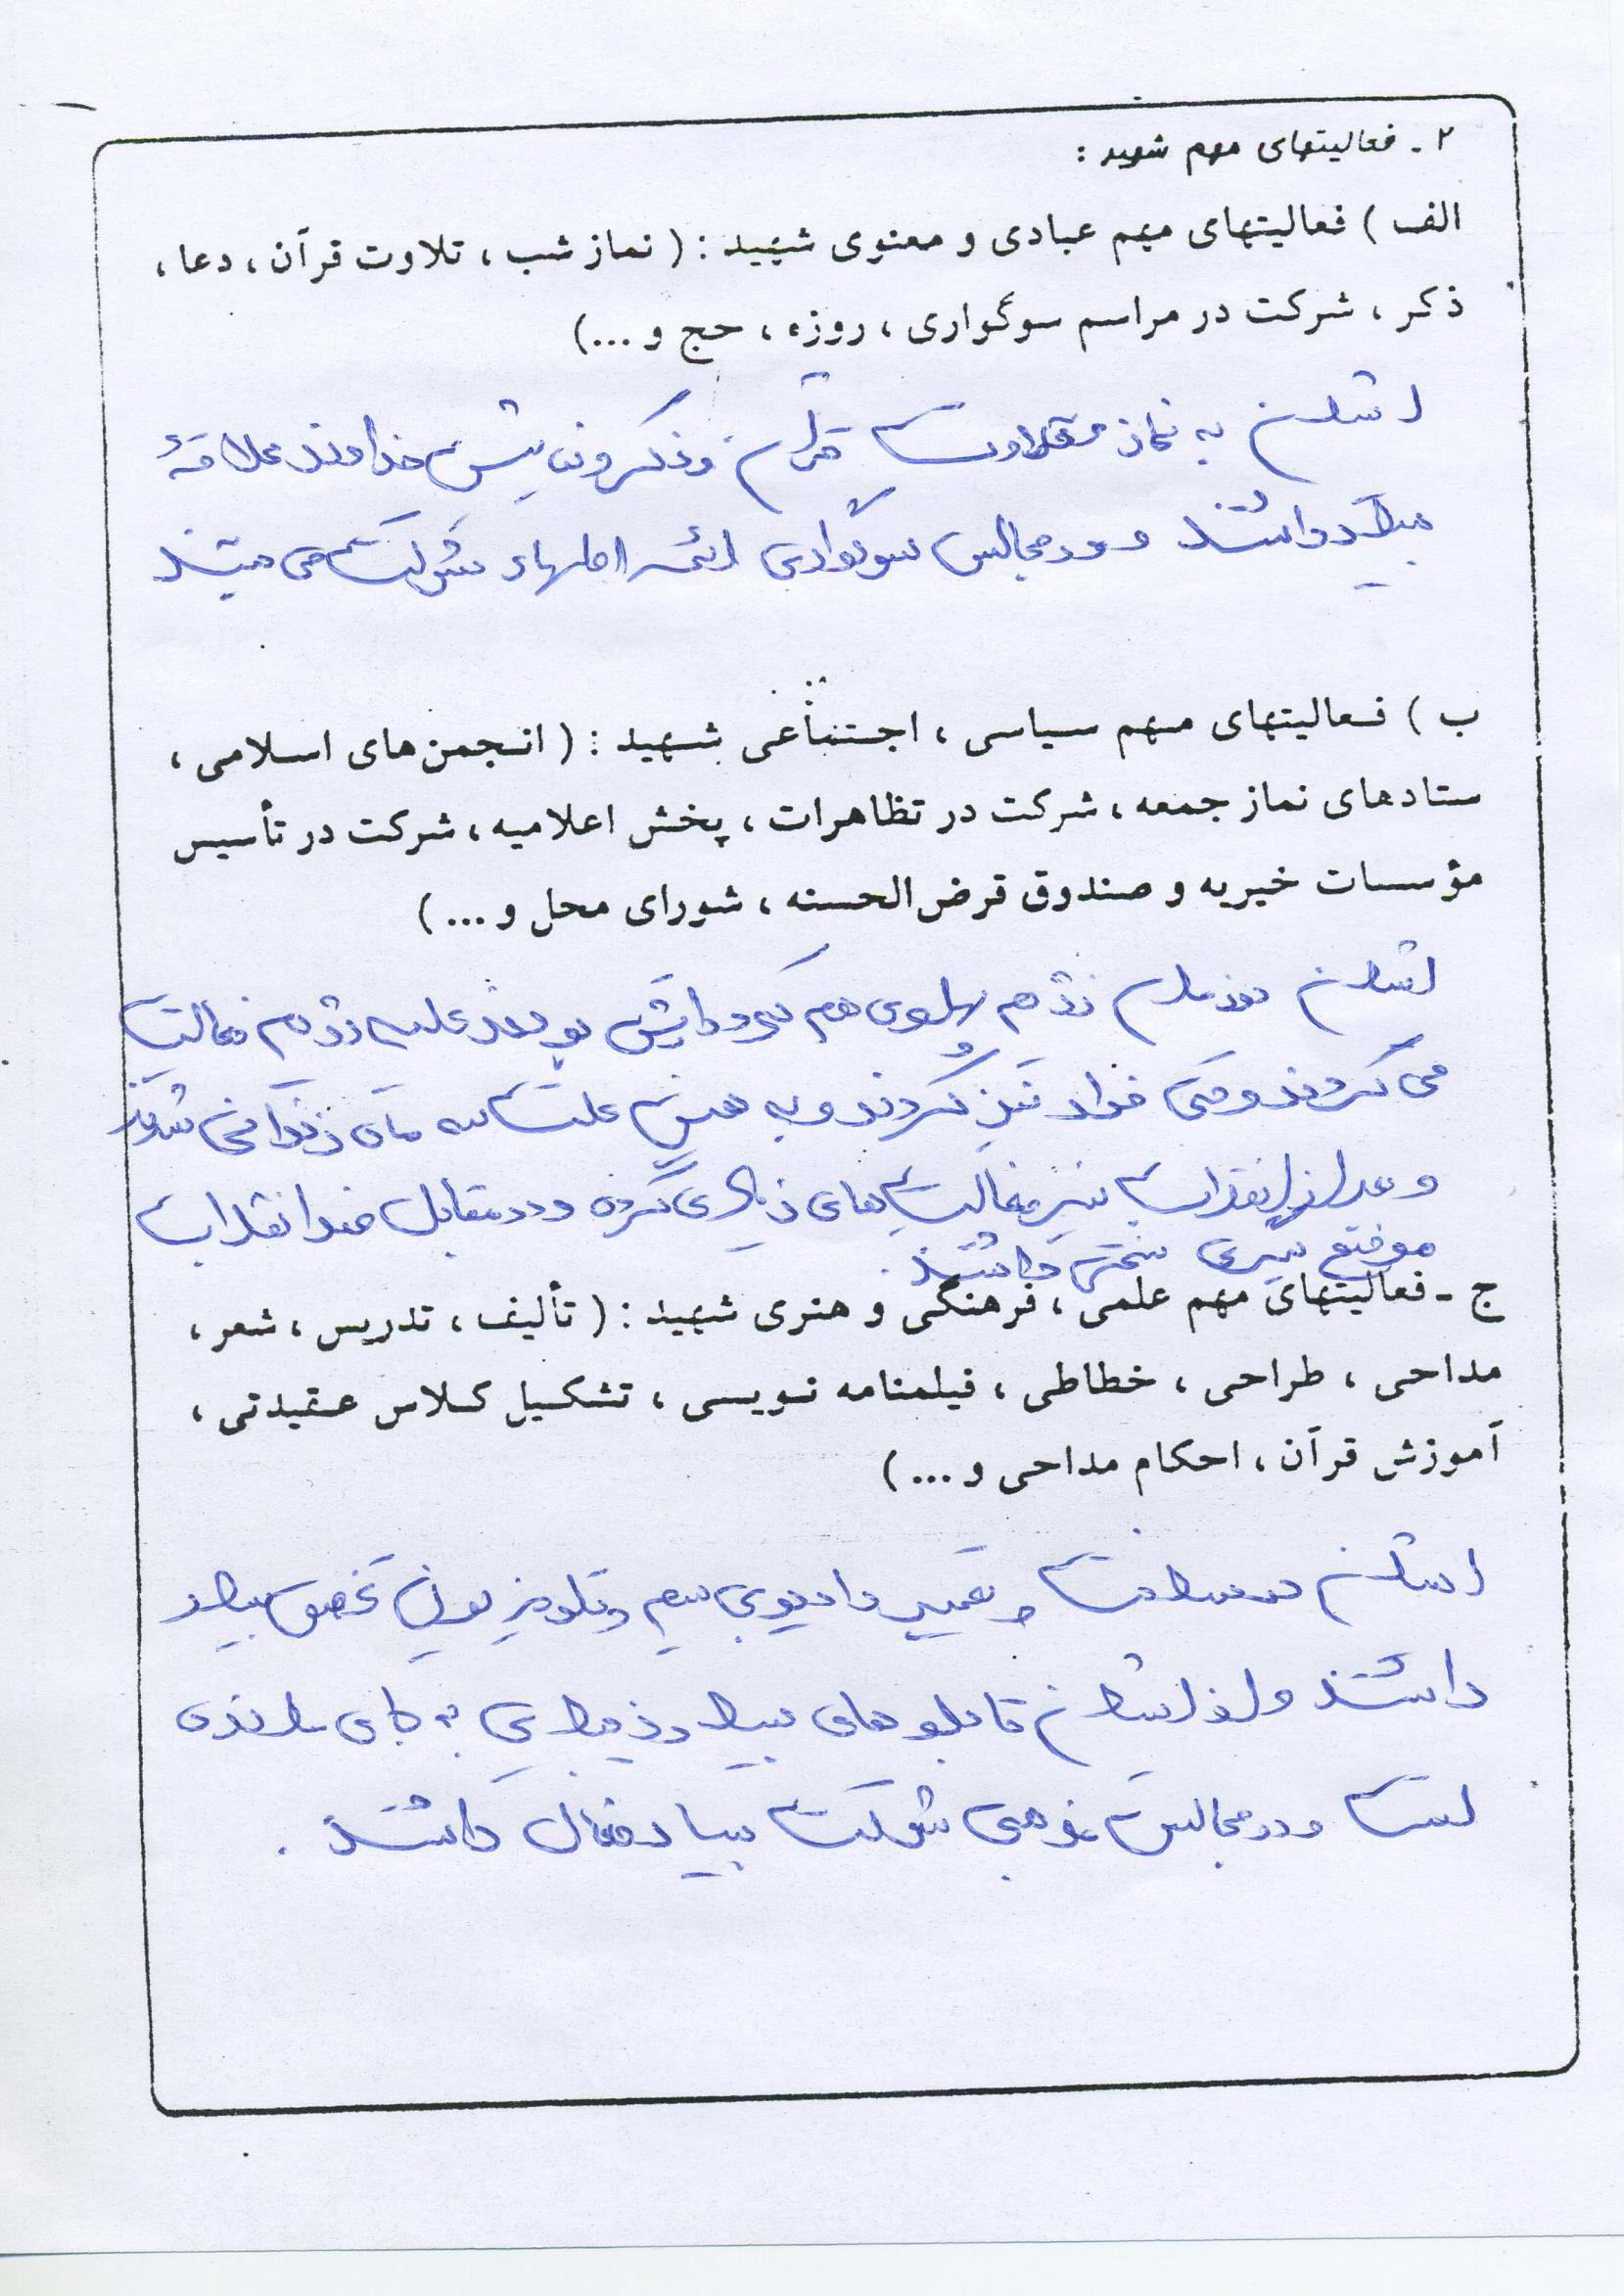 ۲ - فعالیتهای مهم شهید :
الف ) فعالیتهای مهم عبادی و معنوی شهید : ( نماز شب ، تلاوت قرآن ، دعا ،
ذکر ، شرکت در مراسم سوگواری ، روزه ، حج و ...)
ایشان به نماز و تلاوت قرآن و ذکر و نیایش خداوند علاقهٔ
بسیار داشتند و در مجالس سوگواری ائمه اطهار شرکت می جستند
ب ) فعالیتهای مهم سیاسی ، اجتماعی شهید : ( انجمن‌های اسلامی ،
ستادهای نماز جمعه ، شرکت در تظاهرات ، پخش اعلامیه ، شرکت در تأسیس
مؤسسات خیریه و صندوق قرض‌الحسنه ، شورای محل و ... )
ایشان در زمان رژیم پهلوی هم که در ارتش بودند علیه رژیم فعالیت
می کردند و حتی فرار نیز کردند و به همین علت سه ماه زندانی شدند
و بعد از انقلاب نیز فعالیت های زیادی کرده و در مقابل ضد انقلاب
موضع گیری سختی داشتند .
ج - فعالیتهای مهم علمی ، فرهنگی و هنری شهید : ( تألیف ، تدریس ، شعر ،
مداحی ، طراحی ، خطاطی ، فیلمنامه نویسی ، تشکیل کلاس عقیدتی ،
آموزش قرآن ، احکام مداحی و ... )
ایشان در ساخت و تعمیر رادیو بی سیم و تلویزیون تخصص بسیار
داشتند و از ایشان تابلوهای بسیار زیبایی به جای مانده
است و در مجالس مذهبی شرکت بسیار فعال داشتند .